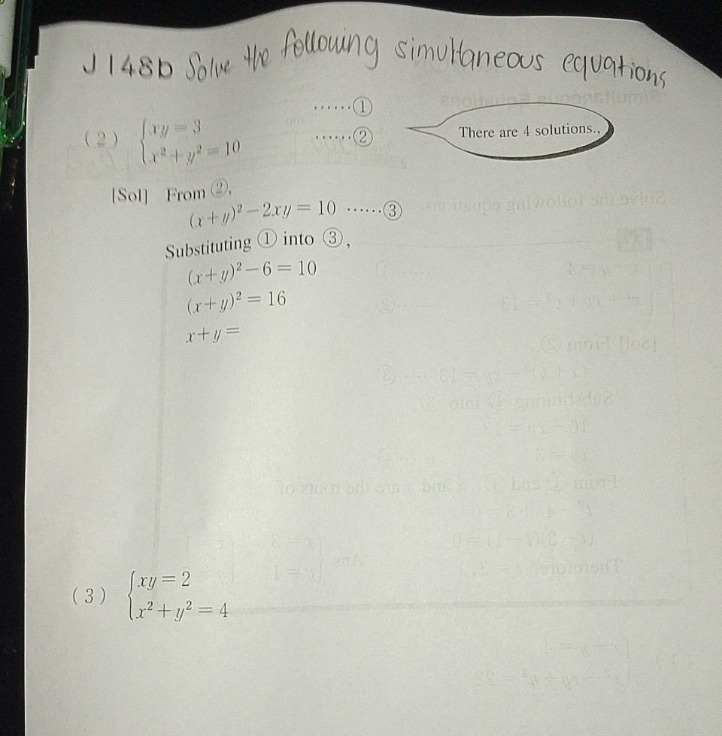 J148b Solve the following simultaneous equations
(2) { xy = 3 ……①
x² + y² = 10 ……②
There are 4 solutions.,
[Sol] From ②,
(x+y)² − 2xy = 10 ……③
Substituting ① into ③,
(x+y)² − 6 = 10
(x+y)² = 16
x+y =
(3) { xy = 2
x² + y² = 4